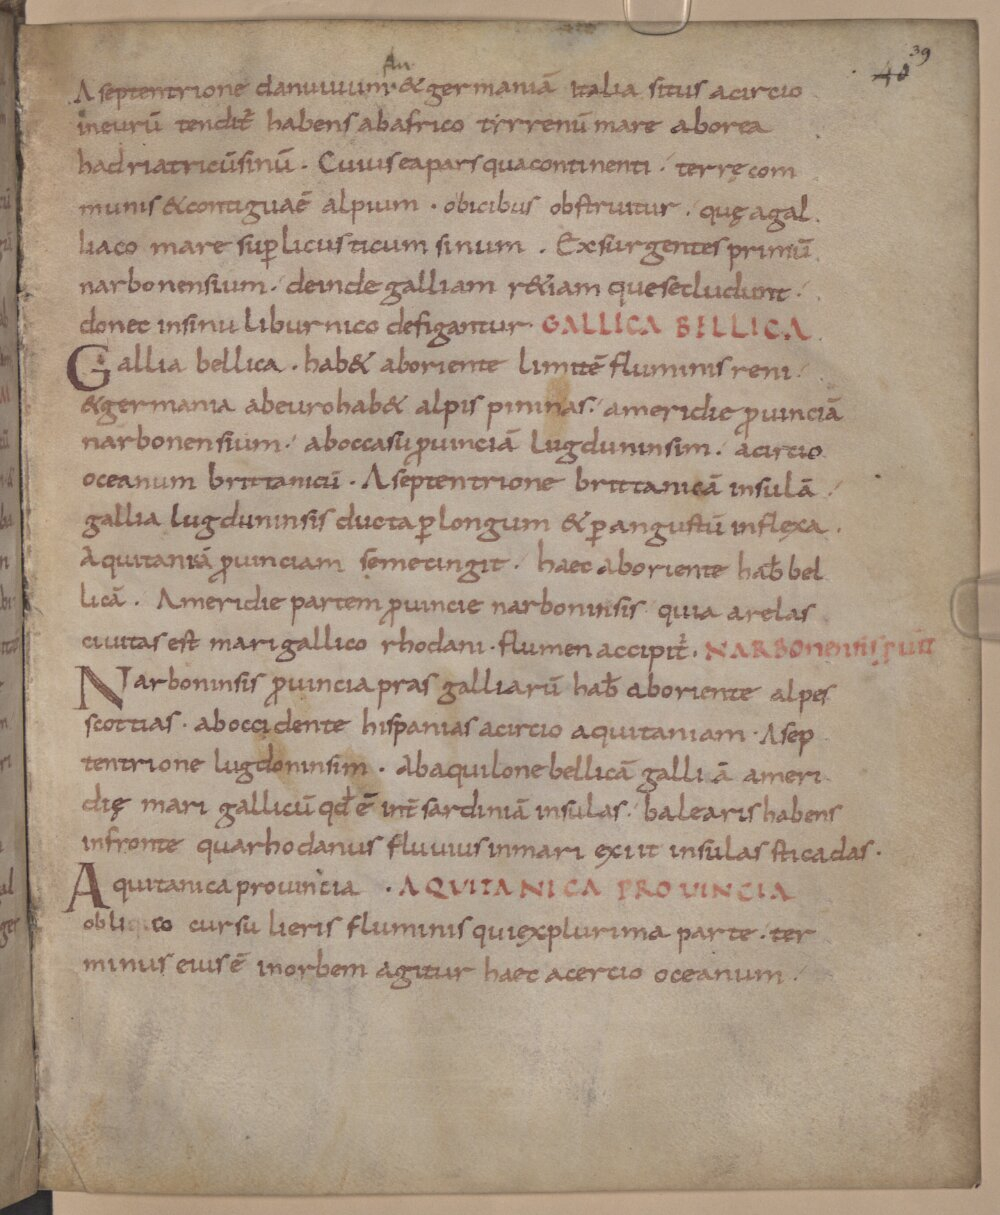 39
40
flu
A septentrione danuuium & germaniā italia situs acircio
ineurū tendit̄ habens abafrico tyrrenū mare aborea
hadriatricūsinū . Cuiuseapars quacontinenti . terrę com
munis &contiguaē alpium . obicibus obstruitur . quę agal
liaco mare sup̄ licusticum sinum . Exsurgentes primū
narbonensium . deinde galliam r&iam quesecludunt .
donec insinu liburnico defigantur . GALLICA BELLICA
Gallia bellica . hab& aboriente limitē fluminis reni .
&germania abeurohab& alpis pininas . ameridie ꝓuinciā
narbonensium . aboccasuꝓuinciā lugduninsim . acircio
oceanum brittanicū . Aseptentrione brittanicā insulā .
gallia lugduninsis ducta ꝑ longum & ꝑ angustū inflexa .
Aquitaniā ꝓuinciam semecingit . haec aboriente hab̄ bel
licā . Ameridie partem ꝓuincie narboninsis quia arelas
ciuitas est marigallico rhodani . flumen accipit̄ . NARBOnensis ꝓuīt
Narboninsis ꝓuincia pras galliarū hab̄ aboriente alpes
scottias . aboccidente hispanias acircio aquitaniam . Asep
tentrione lugdoninsim . Abaquilone bellicā galliā ameri
dię mari gallicū qd̄ ē int̄ sardiniā insulas . balearis habens
infronte quarhodanus fluuius inmari exiit insulas sticadas .
Aquitanica prouincia . AQVITANICA PROVINCIA
cursu lieris fluminis quiexplurima parte . ter
minus eius ē inorbem agitur haec acercio oceanum .